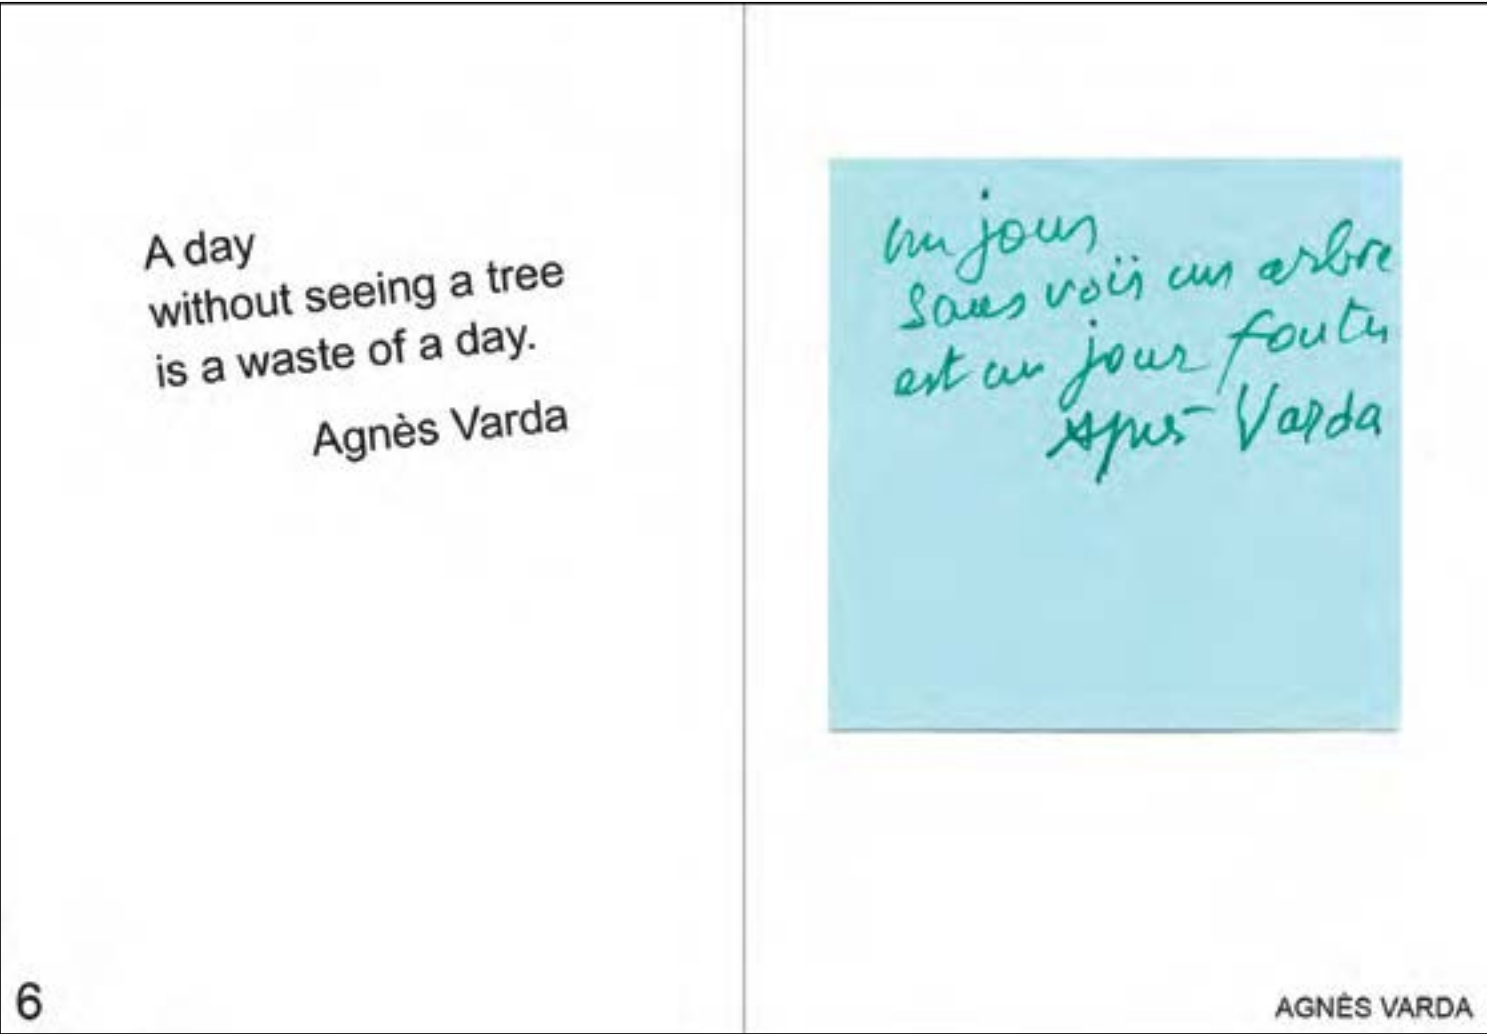 A day
without seeing a tree
is a waste of a day.
Agnès Varda
6
un jour
sans voir un arbre
est un jour foutu
Agnès Varda
AGNÈS VARDA